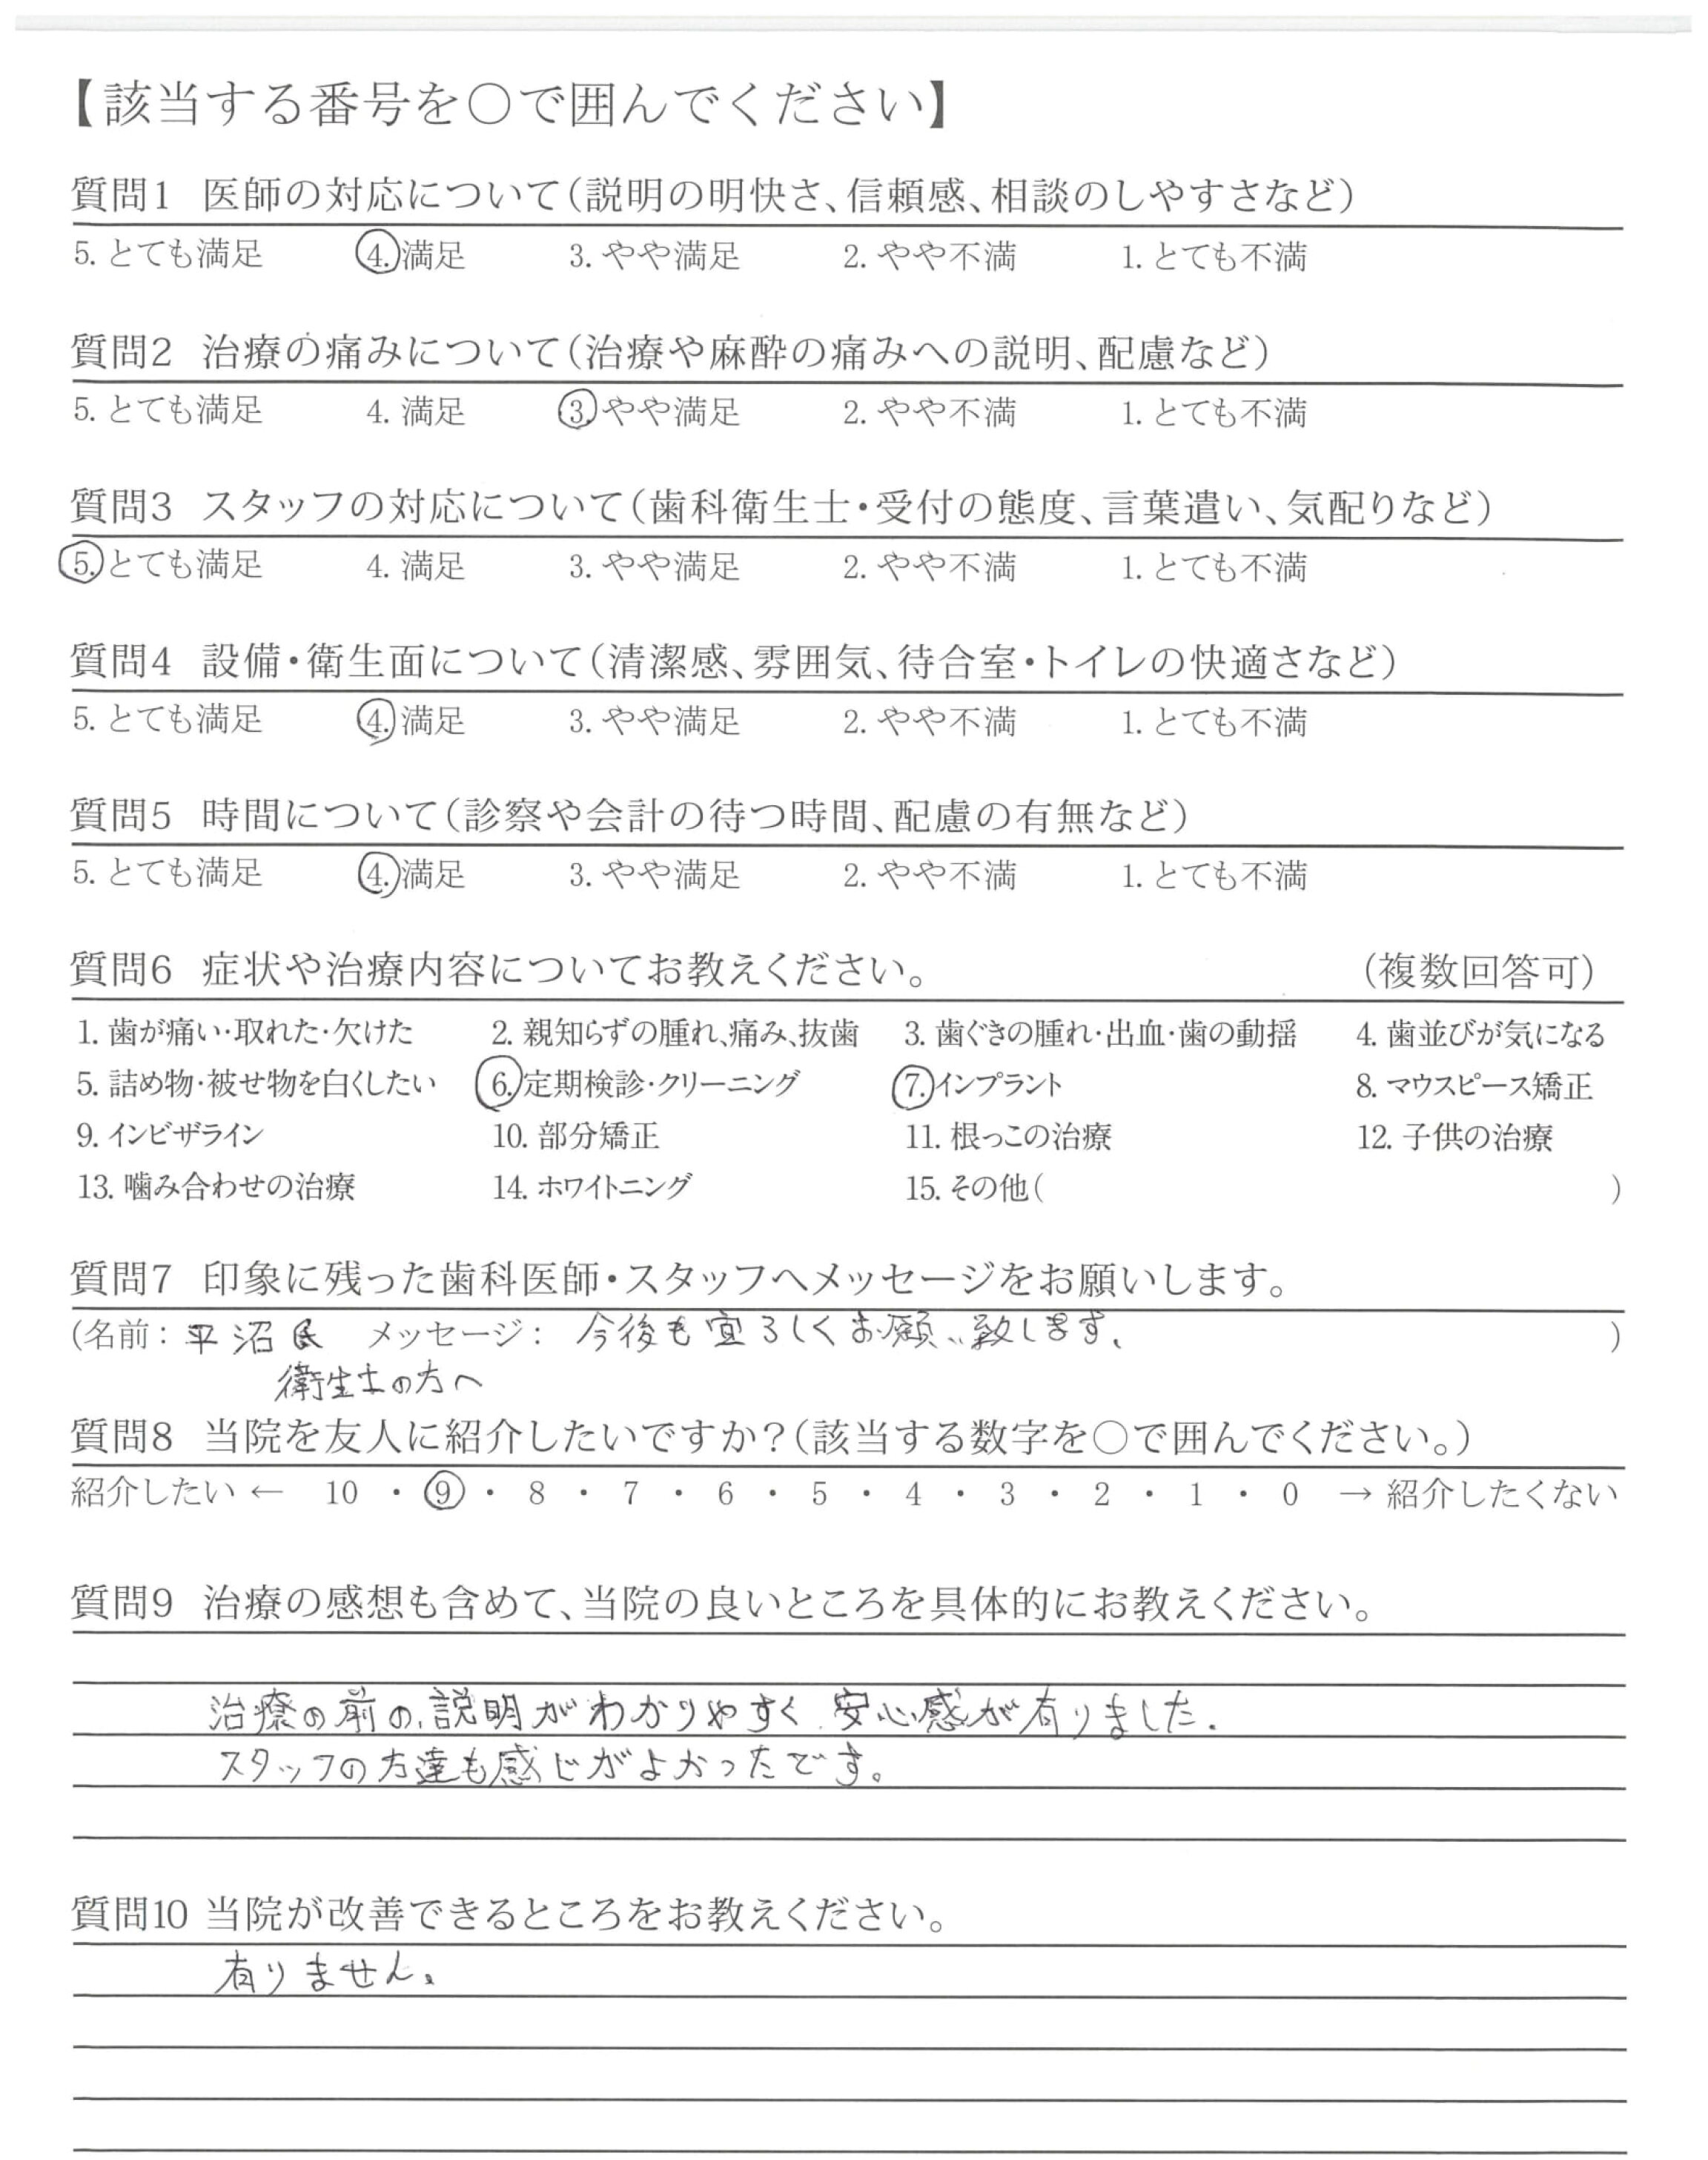 【該当する番号を○で囲んでください】
質問1 医師の対応について(説明の明快さ、信頼感、相談のしやすさなど)
5. とても満足 4. 満足 3. やや満足 2. やや不満 1. とても不満
質問2 治療の痛みについて(治療や麻酔の痛みへの説明、配慮など)
5. とても満足 4. 満足 3. やや満足 2. やや不満 1. とても不満
質問3 スタッフの対応について(歯科衛生士・受付の態度、言葉遣い、気配りなど)
5. とても満足 4. 満足 3. やや満足 2. やや不満 1. とても不満
質問4 設備・衛生面について(清潔感、雰囲気、待合室・トイレの快適さなど)
5. とても満足 4. 満足 3. やや満足 2. やや不満 1. とても不満
質問5 時間について(診察や会計の待つ時間、配慮の有無など)
5. とても満足 4. 満足 3. やや満足 2. やや不満 1. とても不満
質問6 症状や治療内容についてお教えください。 (複数回答可)
1. 歯が痛い・取れた・欠けた 2. 親知らずの腫れ、痛み、抜歯 3. 歯ぐきの腫れ・出血・歯の動揺 4. 歯並びが気になる
5. 詰め物・被せ物を白くしたい 6. 定期検診・クリーニング 7. インプラント 8. マウスピース矯正
9. インビザライン 10. 部分矯正 11. 根っこの治療 12. 子供の治療
13. 噛み合わせの治療 14. ホワイトニング 15. その他( )
質問7 印象に残った歯科医師・スタッフへメッセージをお願いします。
(名前: 平沼氏 メッセージ: 今後も宜ろしくお願い致します。 )
衛生士の方へ
質問8 当院を友人に紹介したいですか?(該当する数字を○で囲んでください。)
紹介したい ← 10 ・ 9 ・ 8 ・ 7 ・ 6 ・ 5 ・ 4 ・ 3 ・ 2 ・ 1 ・ 0 → 紹介したくない
質問9 治療の感想も含めて、当院の良いところを具体的にお教えください。
治療の前の説明がわかりやすく、安心感が有りました。
スタッフの方達も感じがよかったです。
質問10 当院が改善できるところをお教えください。
有りません。